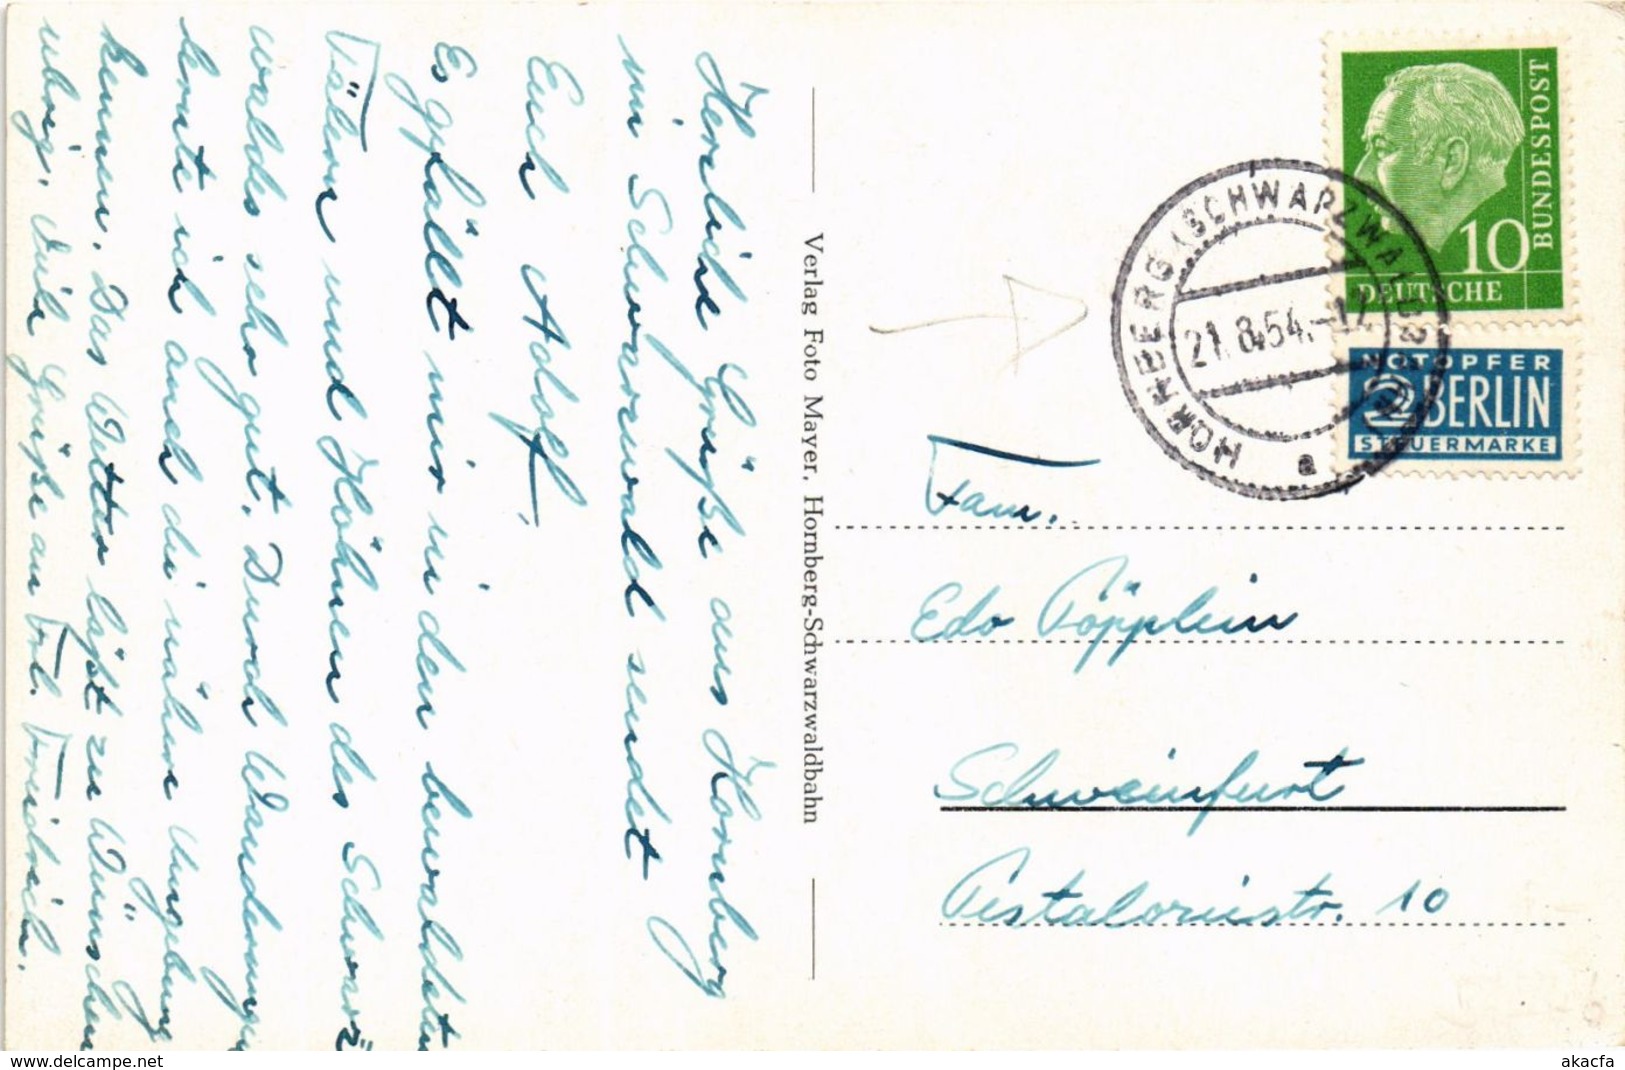 Herzliche Grüße aus Hornberg
im Schwarzwald sendet
Euch Adolf.
Es gefällt mir in den bewaldeten
Tälern und Höhnen des Schwarz
waldes sehr gut. Durch Wanderungen
konte ich auch die nähere Umgebung
kennen. Das Wetter läßt zu Wünschen
übrig. Viele Grüße an Frl. Friedrich.
Verlag Foto Mayer, Hornberg-Schwarzwaldbahn
DEUTSCHE BUNDESPOST
10
NOTOPFER
2 BERLIN
STEUERMARKE
HORNBERG (SCHWARZWALDBAHN)
21.8.54.-17
a
Fam.
Edo Pöpplein
Schweinfurt
Pestalozzistr. 10
akacfa
www.delcampe.net